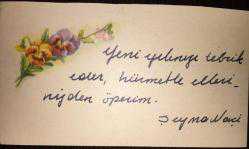 Yeni yılınızı tebrik
eder, hürmetle elleri-
nizden öperim.